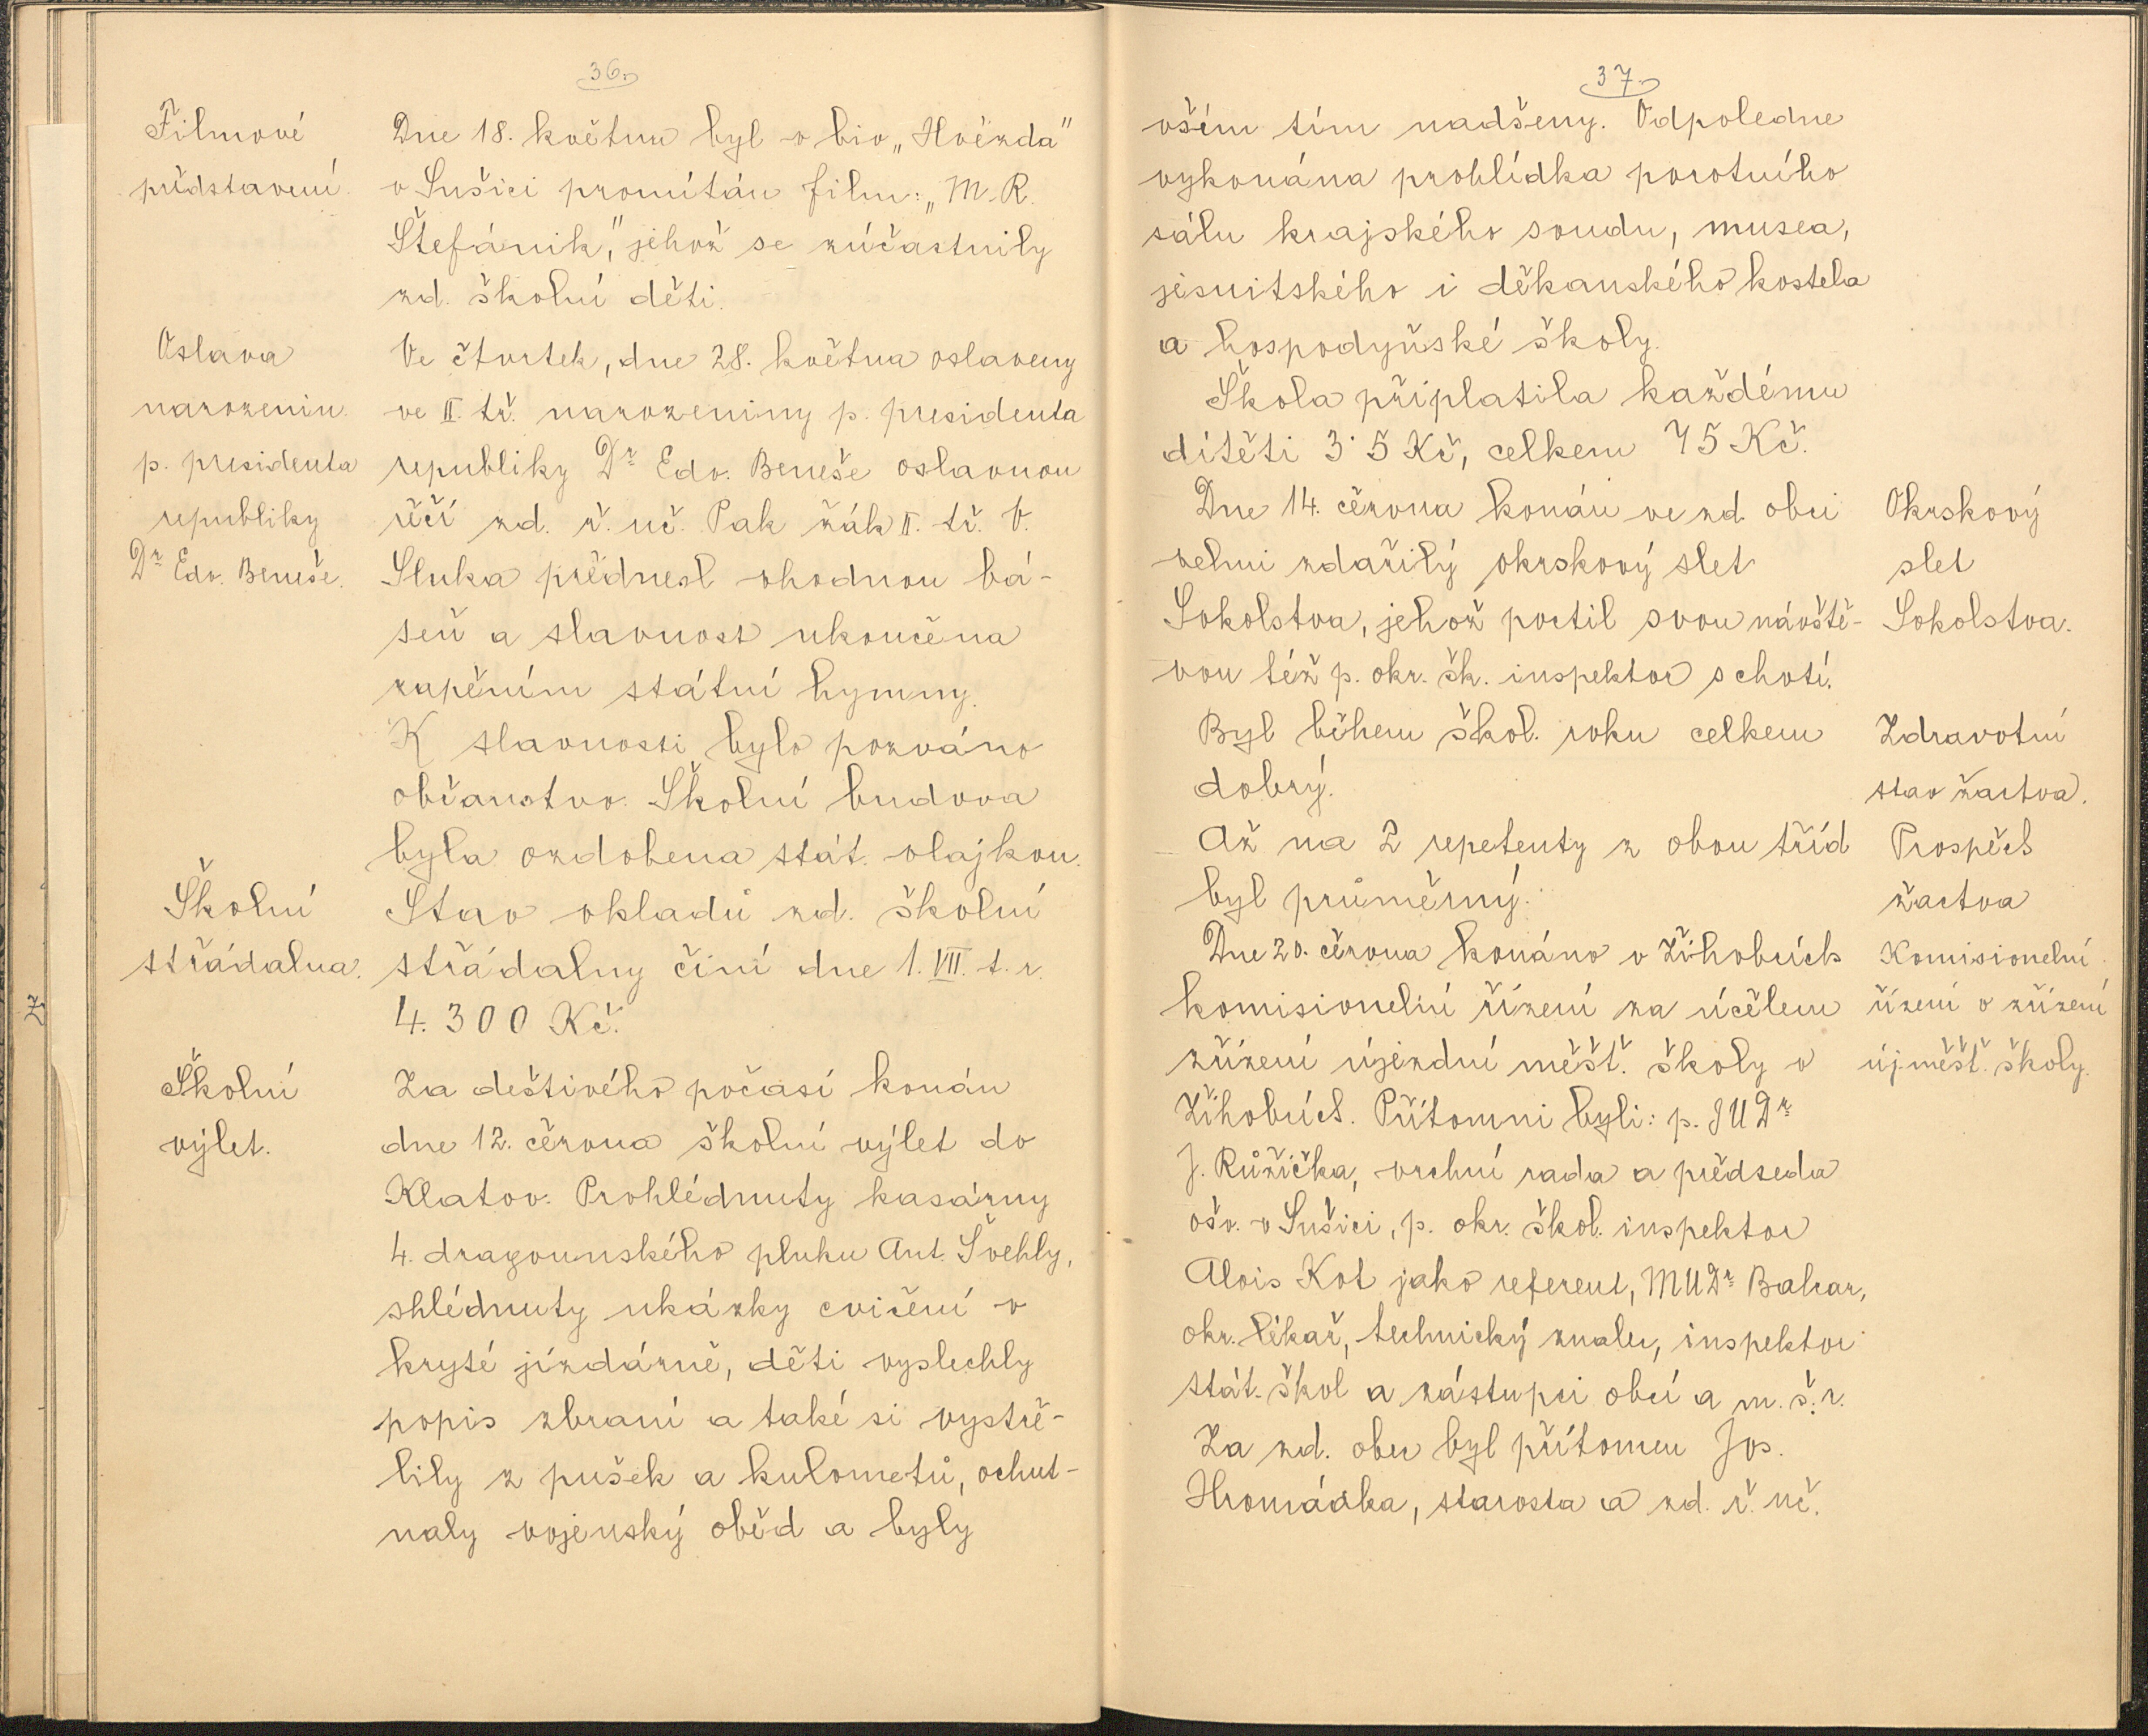 36.
Filmové
představení.
Dne 18. května byl v bio „Hvězda"
v Sušici promítán film: „M. R.
Štefánik," jehož se zúčastnily
zd. školní děti.
Oslava
narozenin
p. presidenta
republiky
Dr Edv. Beneše.
Ve čtvrtek, dne 28. května oslaveny
ve II. tř. narozeniny p. presidenta
republiky Dr Edv. Beneše oslavnou
řečí zd. ř. uč. Pak žák II. tř. V.
Sluka přednesl vhodnou bá-
seň a slavnost ukončena
zapěním státní hymny.
K slavnosti bylo pozváno
občanstvo. Školní budova
byla ozdobena stát. vlajkou.
Školní
střádalna.
Stav vkladů zd. školní
střádalny činí dne 1. VII. t. r.
4.300 Kč.
Školní
výlet.
Za deštivého počasí konán
dne 12. června školní výlet do
Klatov. Prohlédnuty kasárny
4. dragounského pluku Ant. Švehly,
shlédnuty ukázky cvičení v
kryté jízdárně, děti vyslechly
popis zbraní a také si vystře-
lily z pušek a kulometů, ochut-
naly vojenský oběd a byly
37.
vším tím nadšeny. Odpoledne
vykonána prohlídka porotního
sálu krajského soudu, musea,
jesuitského i děkanského kostela
a hospodyňské školy.
Škola připlatila každému
dítěti 3·5 Kč, celkem 75 Kč.
Dne 14. června konán ve zd. obci
velmi zdařilý okrskový slet
Sokolstva, jehož poctil svou návště-
vou též p. okr. šk. inspektor s chotí.
Okrskový
slet
Sokolstva.
Byl během škol. roku celkem
dobrý.
Zdravotní
stav žactva.
Až na 2 repetenty z obou tříd
byl průměrný.
Prospěch
žactva
Dne 20. června konáno v Žihobcích
komisionelní řízení za účelem
zřízení újezdní měšť. školy v
Žihobcích. Přítomni byli: p. JUDr
J. Růžička, vrchní rada a předseda
ošv. v Sušici, p. okr. škol. inspektor
Alois Kot jako referent, MUDr Balcar,
okr. lékař, technický znalec, inspektor
stát. škol a zástupci obcí a m. š. r.
Za zd. obec byl přítomen Jos.
Hromádka, starosta a zd. ř. uč.
Komisionelní
řízení o zřízení
új. měšť. školy.